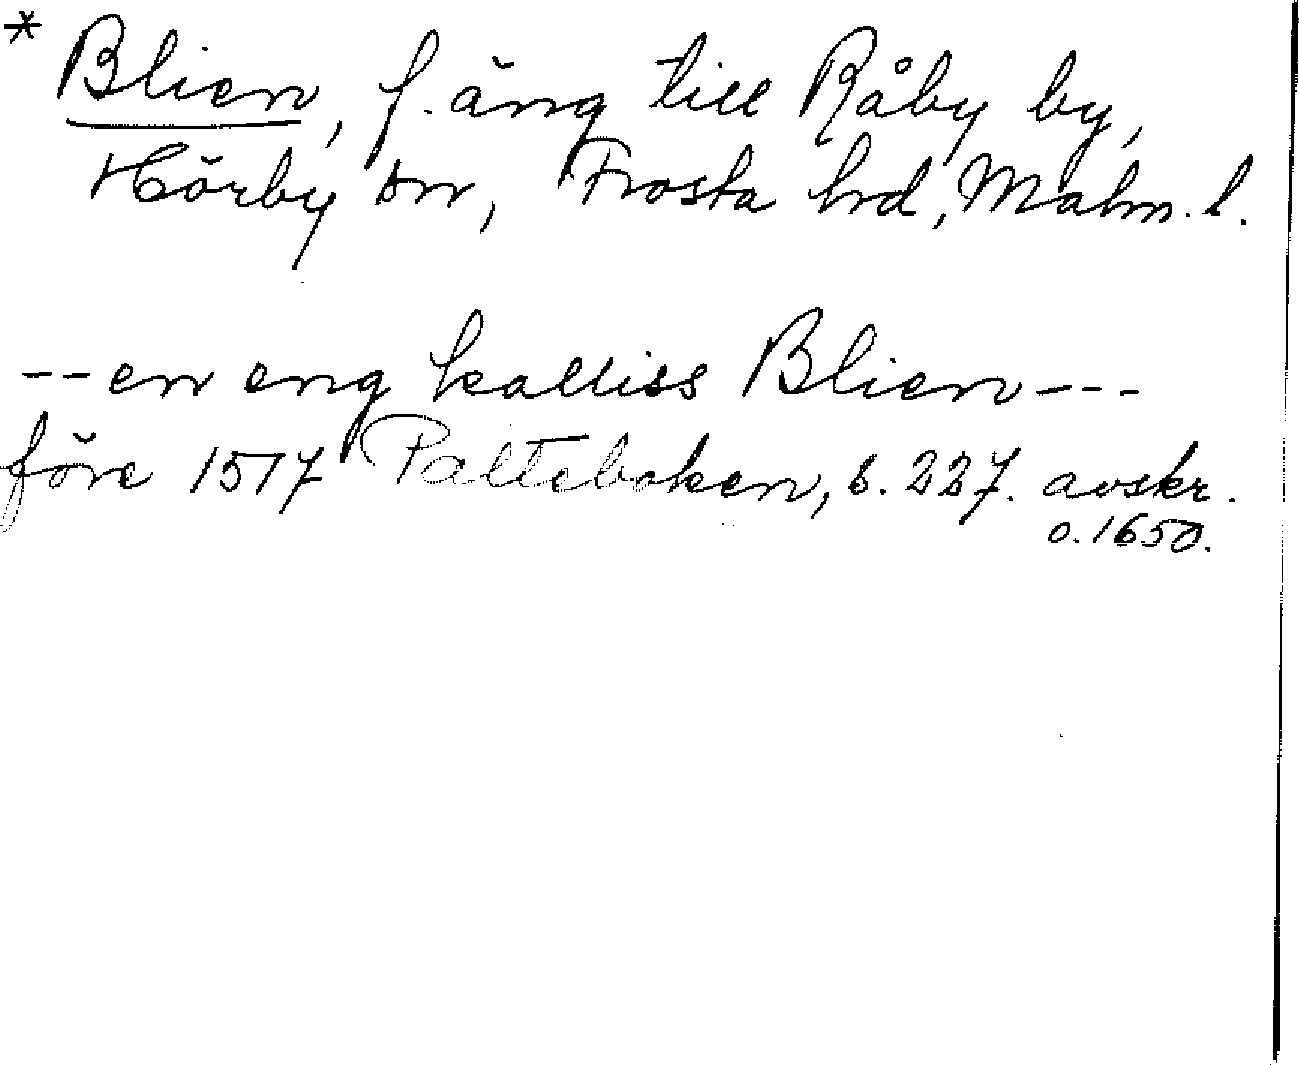 * Blien, f. äng till Råby by,
Hörby sn, Frosta hrd, Malm. l.
-- en eng kalliss Blien ---
före 1517 Palteboken, s. 227. avskr.
o. 1650.